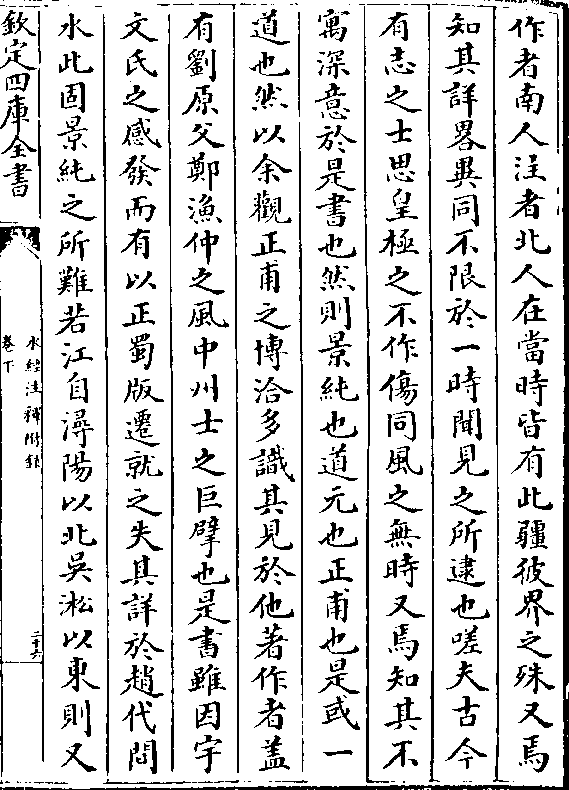 作者南人注者北人在當時皆有此疆彼界之殊又焉
知其詳畧異同不限於一時聞見之所逮也嗟夫古今
有志之士思皇極之不作傷同風之無時又焉知其不
寓深意於是書也然則景純也道元也正甫也是或一
道也然以余觀正甫之博洽多識其見於他著作者蓋
有劉原父鄭漁仲之風中州士之巨擘也是書雖因字
文氏之感發而有以正蜀版遷就之失其詳於趙代間
水此固景純之所難若江自潯陽以北吳淞以東則又
欽定四庫全書
水經注釋附錄
卷下
二十六